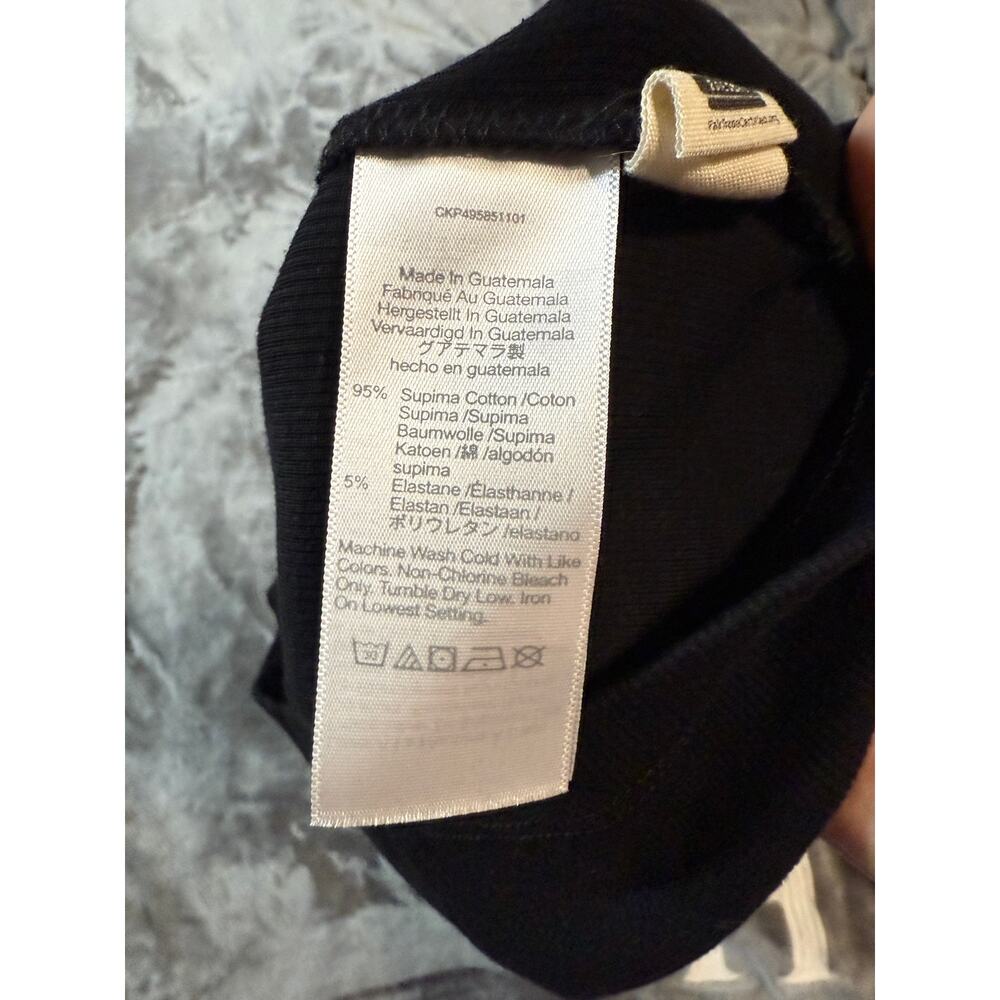 FairTradeCertified.org
CKP495851101
Made In Guatemala
Fabriqué Au Guatemala
Hergestellt In Guatemala
Vervaardigd In Guatemala
グアテマラ製
hecho en guatemala
95% Supima Cotton /Coton
Supima /Supima
Baumwolle /Supima
Katoen /綿 /algodón
supima
5% Elastane /Élasthanne /
Elastan /Elastaan /
ポリウレタン /elastano
Machine Wash Cold With Like
Colors. Non-Chlorine Bleach
Only. Tumble Dry Low. Iron
On Lowest Setting.
30